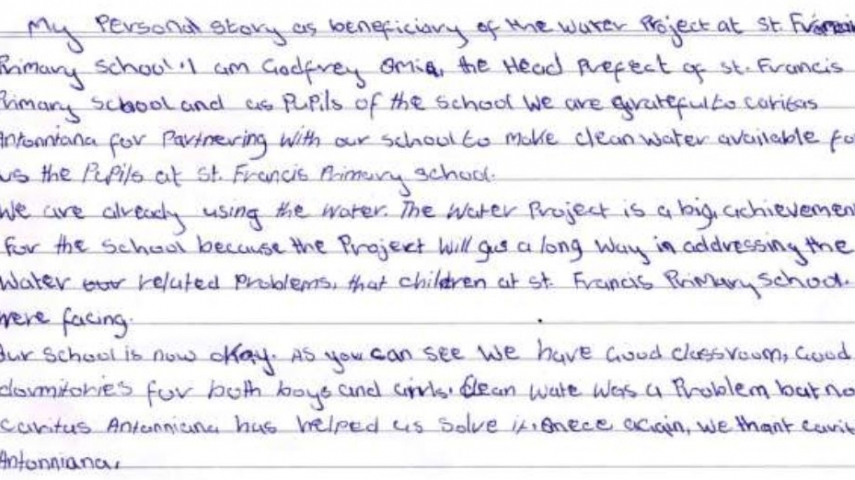 My Personal story as beneficiary of the Water Project at St. Francis
Primary School. I am Godfrey Omia, the Head Prefect of St. Francis
Primary School and as Pupils of the School We are grateful to caritas
Antonniana for Partnering with our school to make clean water available fo
us the Pupils at St. Francis Primary school.
We are already using the water. The Water Project is a big achievemen
for the School because the Project will go a long way in addressing the
Water related Problems, that children at St. Francis Primary School.
were facing.
Our School is now okay. As you can see we have Good classroom, Good
dormitories for both boys and girls. Clean wate was a Problem but no
caritas Antonniana has helped us solve it. Onece again, we thant carit
Antonniana,